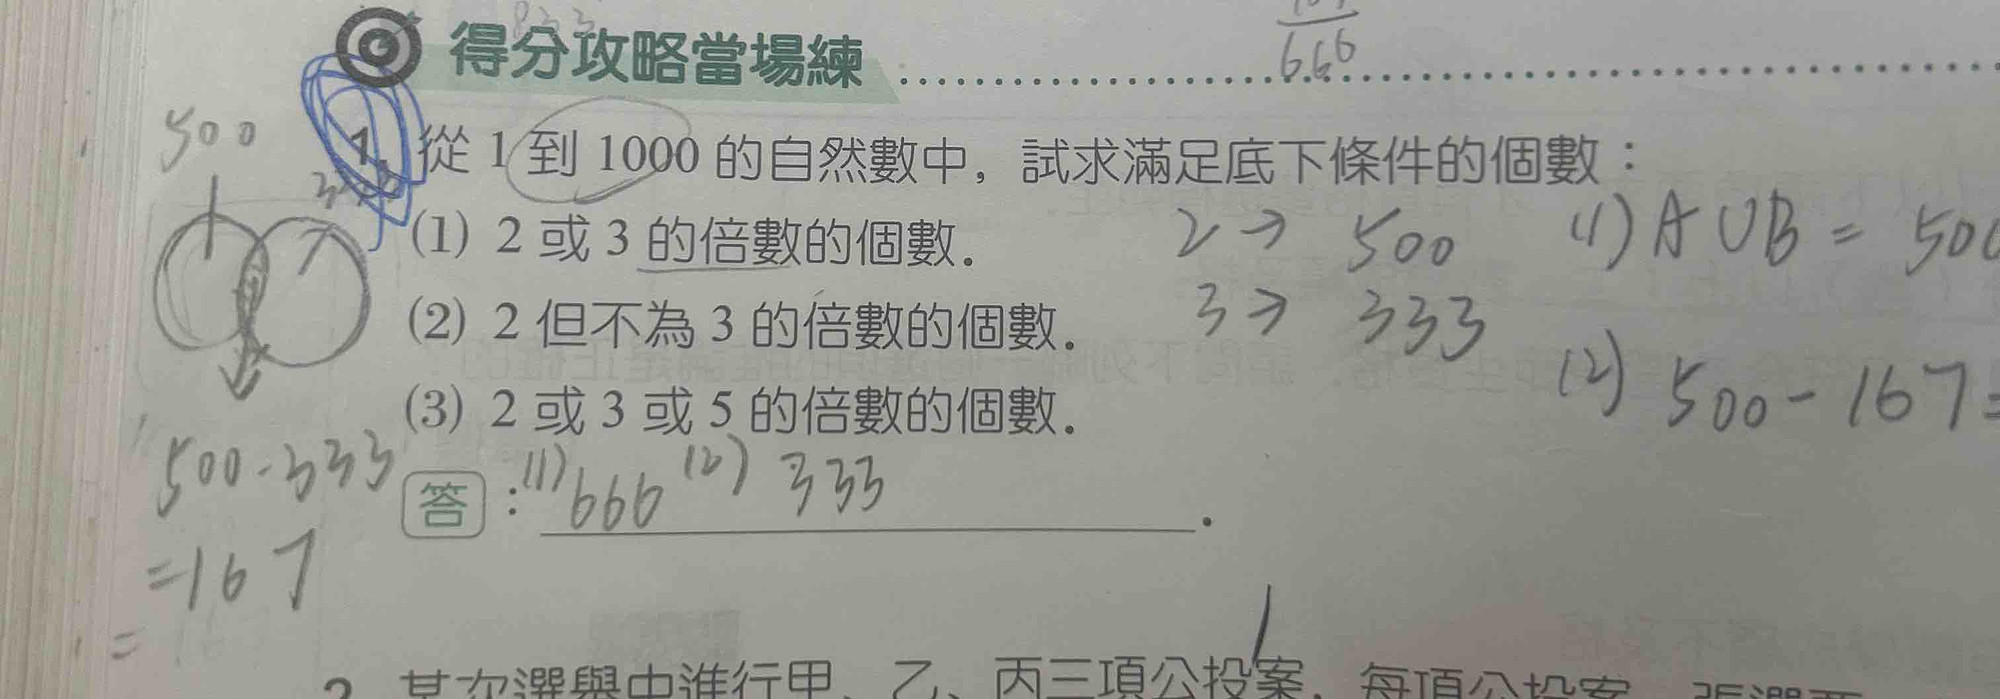 得分攻略當場練
666
500
1. 從 1 到 1000 的自然數中，試求滿足底下條件的個數：
(1) 2 或 3 的倍數的個數．
2→ 500
(1) A∪B = 500
(2) 2 但不為 3 的倍數的個數．
3→ 333
(2) 500-167=
(3) 2 或 3 或 5 的倍數的個數．
500-333
=167
=
答：(1) 666 (2) 333．
2. 某次選舉中進行甲、乙、丙三項公投案，每項公投案